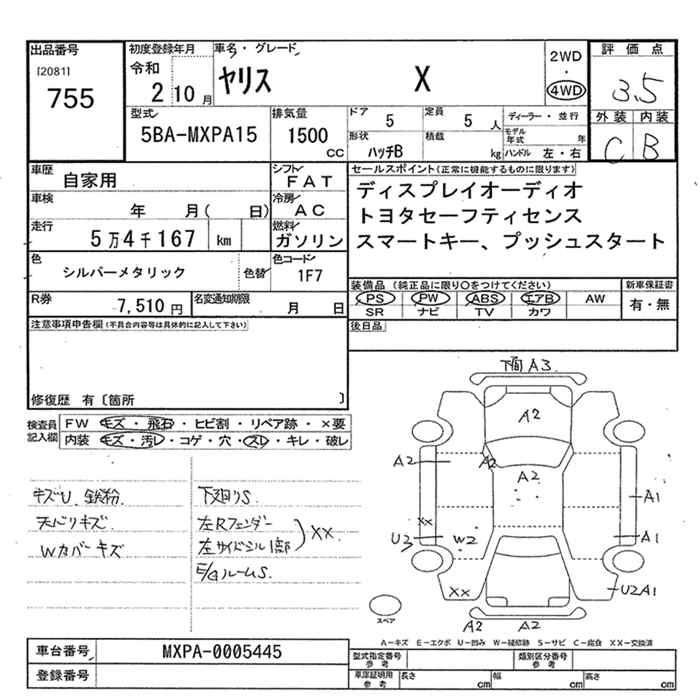 出品番号
[2081]
755
初度登録年月
令和
2 10 月
車名・グレード
ヤリス X
2WD
・
4WD
評価点
3.5
外装 内装
C B
型式
5BA-MXPA15
排気量
1500
cc
ドア
5
定員
5 人
形状
ハッチB
積載
kg
ディーラー・並行
モデル年式 年
ハンドル 左・右
車歴
自家用
シフト
FAT
車検
年 月( 日)
冷房
AC
走行
5万4千167 km
燃料
ガソリン
色
シルバーメタリック
色替
色コード
1F7
R券
7,510 円
名変通知期限
月 日
セールスポイント(正常に機能するものに限ります)
ディスプレイオーディオ
トヨタセーフティセンス
スマートキー、プッシュスタート
装備品 (純正品に限り○をつけてください)
PS PW ABS エアB AW
SR ナビ TV カワ
新車保証書
有・無
後日品
注意事項申告欄(不具合内容等は具体的に記入して下さい)
修復歴 有〔箇所 〕
検査員
記入欄
FW キズ・飛石・ヒビ割・リペア跡・×要
内装 キズ・汚レ・コゲ・穴・スレ・キレ・破レ
キズU 鉄粉
天バリキズ
Wカバーキズ
下廻りS
左Rフェンダー
左サイドシル1部
XX
E/GルームS
下面A3
A2
A2
A2
A2
A1
XX
U3
W2
A1
XX
U2A1
A2
A2
スペア
A-キズ E-エクボ U-凹み W-補修跡 S-サビ C-腐食 XX-交換済
車台番号
MXPA-0005445
登録番号
型式指定番号
参考
類別区分番号
参考
車庫証明用
参考
長さ cm
幅 cm
高さ cm